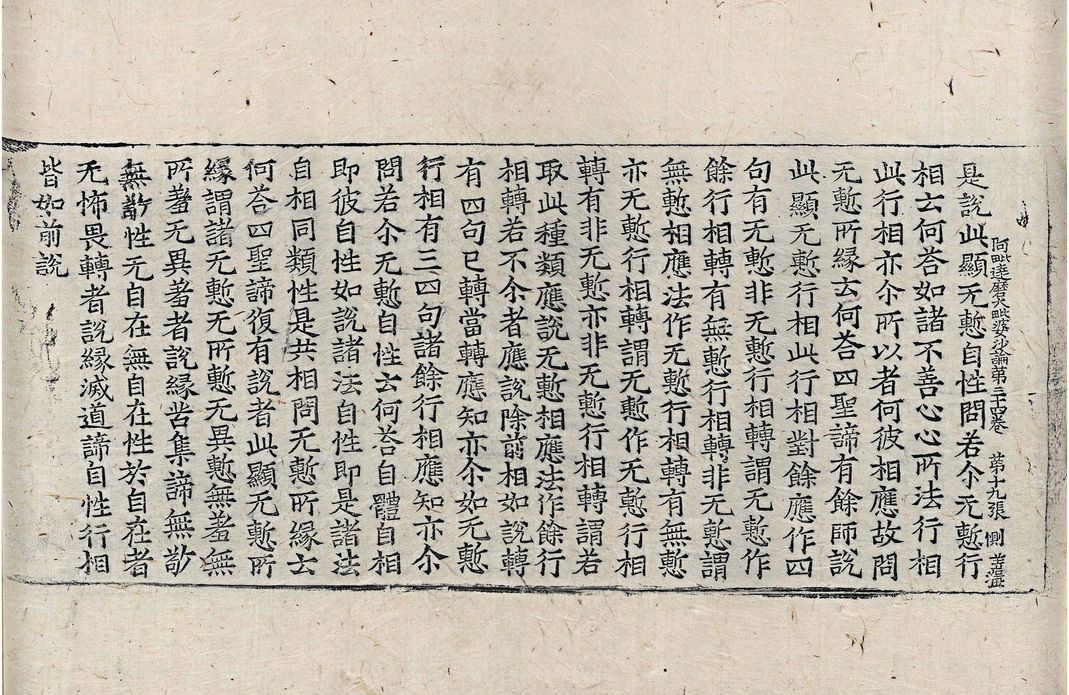 阿毗達磨大毗婆沙論第三十四卷 第十九張 惻
是說此顯无慙自性問若尒无慙行
相云何荅如諸不善心心所法行相
此行相亦尒所以者何彼相應故問
无慙所緣云何荅四聖諦有餘師說
此顯无慙行相此行相對餘應作四
句有无慙非无慙行相轉謂无慙作
餘行相轉有無慙行相轉非无慙謂
無慙相應法作无慙行相轉有無慙
亦无慙行相轉謂无慙作无慙行相
轉有非无慙亦非无慙行相轉謂若
取此種類應說无慙相應法作餘行
相轉若不尒者應說除前相如說轉
有四句已轉當轉應知亦尒如无慙
行相有三四句諸餘行相應知亦尒
問若尒无慙自性云何荅自體自相
即彼自性如說諸法自性即是諸法
自相同類性是共相問无慙所緣云
何荅四聖諦復有說者此顯无慙所
緣謂諸无慙无所慙无異慙無羞無
所羞无異羞者說緣苦集諦無敬
無敬性无自在無自在性於自在者
无怖畏轉者說緣滅道諦自性行相
皆如前說